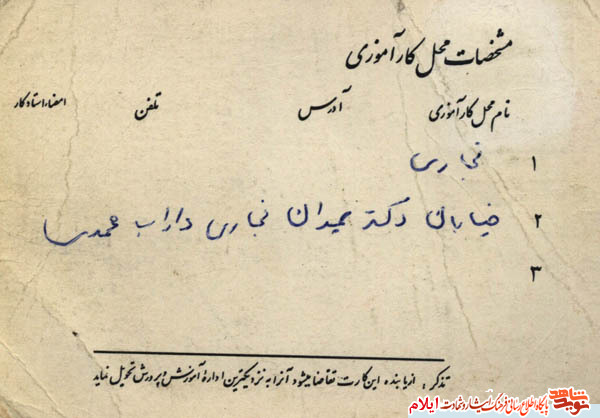 مشخصات محل کارآموزی
نام محل کارآموزی آدرس تلفن امضاء استادکار
۱ نجاری
۲ خیابان دکتر حمیدان نجاری داراب محمدی
۳
تذکر: از یابنده این کارت تقاضا میشود آنرا به نزدیکترین اداره آموزش و پرورش تحویل نماید
نوید شاهد پایگاه اطلاع رسانی فرهنگ ایثار و شهادت ایلام